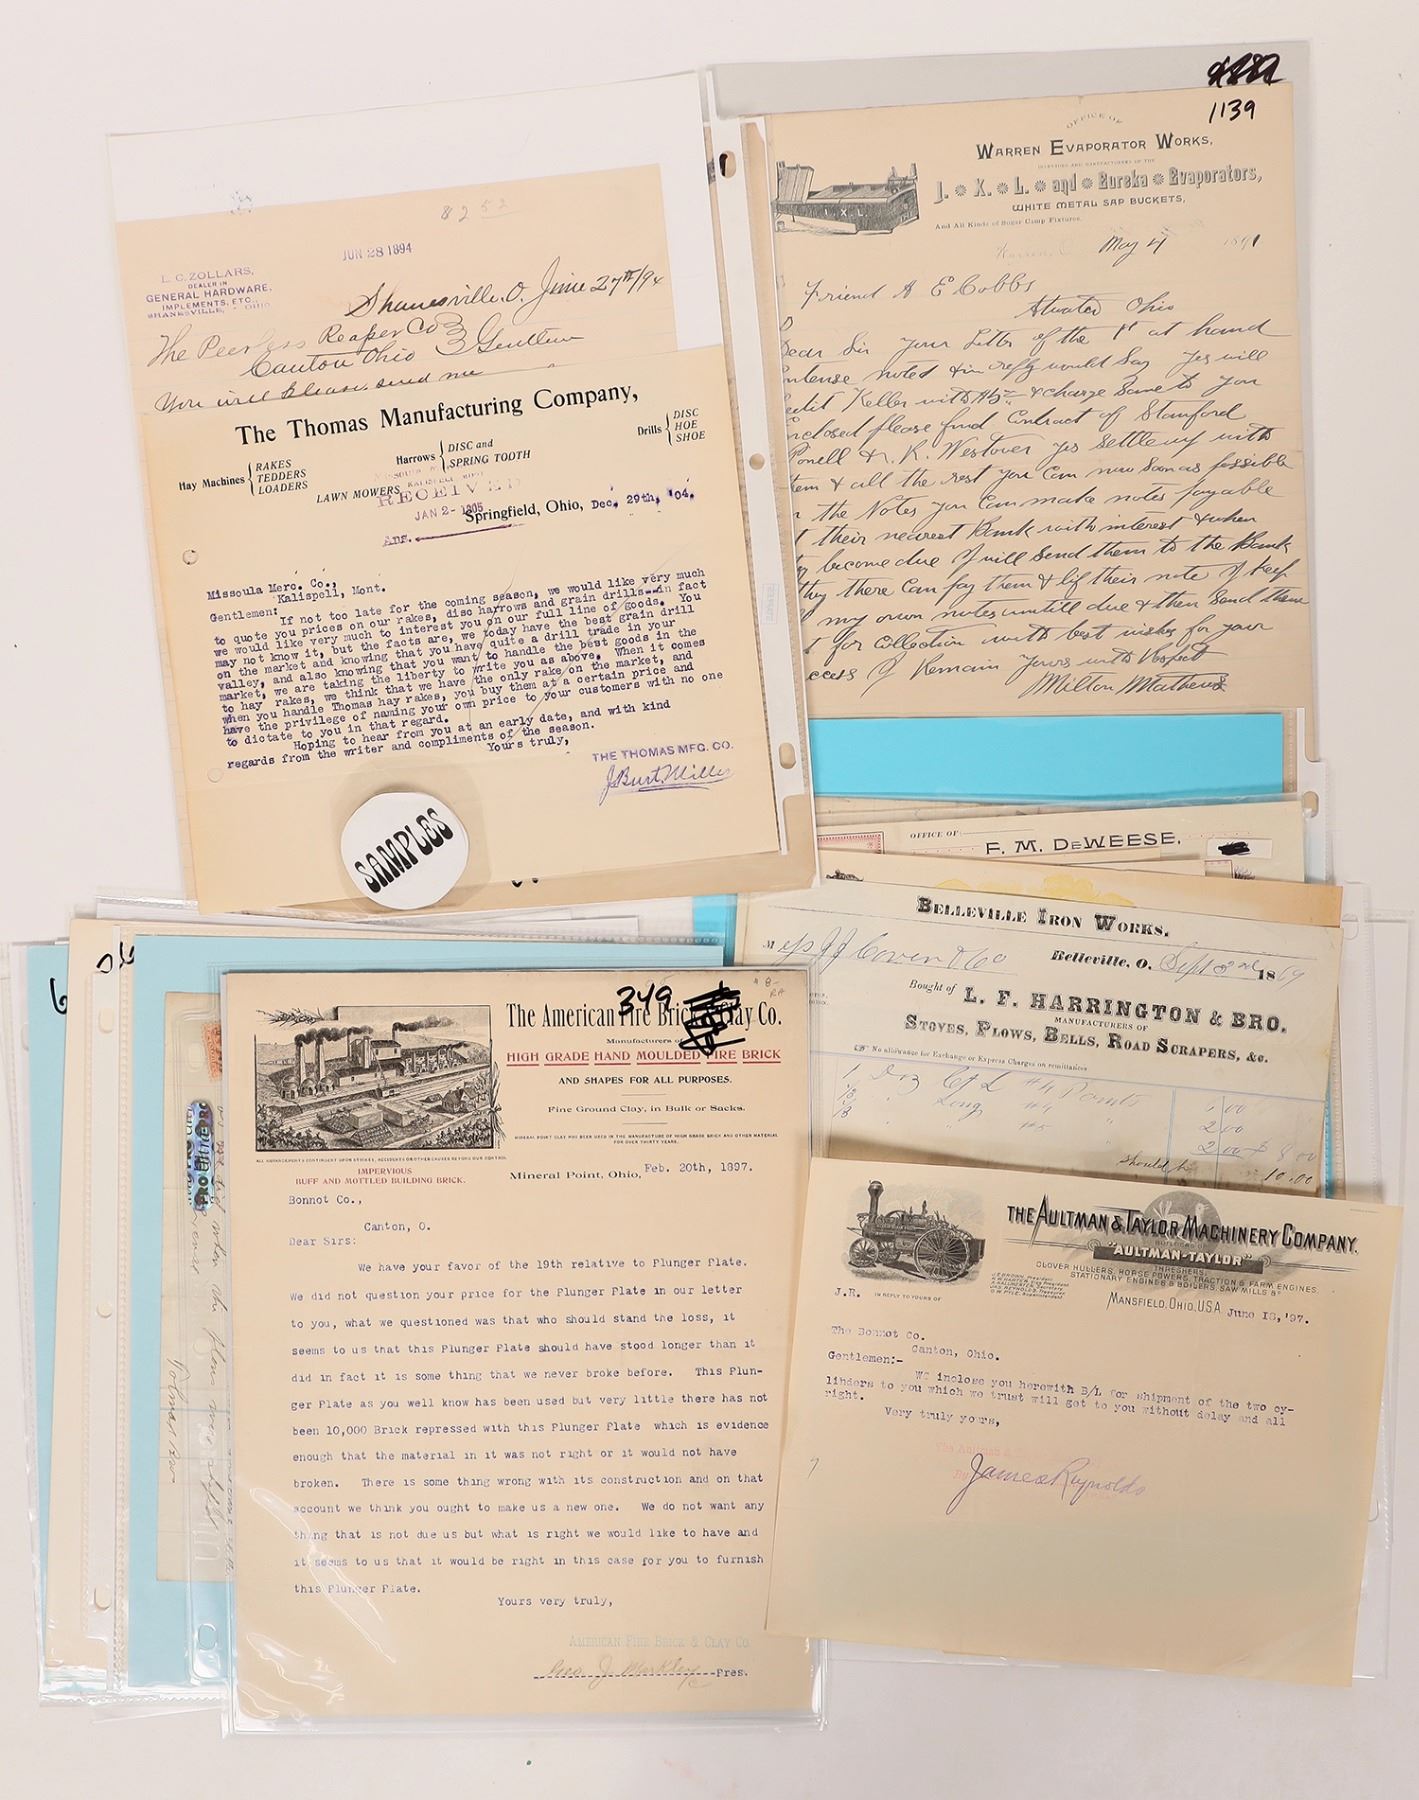 8252
JUN 28 1894
L. C. ZOLLARS,
DEALER IN
GENERAL HARDWARE,
IMPLEMENTS, ETC.
SHANESVILLE, OHIO
Shanesville, O. June 27th/94
The Peerless Reaper Co
Canton Ohio } Gentlemen
You will please send me
The Thomas Manufacturing Company,
Hay Machines { RAKES TEDDERS LOADERS
Harrows { DISC and SPRING TOOTH
Drills { DISC HOE SHOE
LAWN MOWERS
RECEIVED
JAN 2- 1905
Springfield, Ohio, Dec. 29th, '04.
Ans.
Missoula Merc. Co.,
Kalispell, Mont.
Gentlemen:
If not too late for the coming season, we would like very much
to quote you prices on our rakes, disc harrows and grain drills--in fact
we would like very much to interest you on our full line of goods. You
may not know it, but the facts are, we today have the best grain drill
on the market and knowing that you have quite a drill trade in your
valley, and also knowing that you want to handle the best goods in the
market, we are taking the liberty to write you as above. When it comes
to hay rakes, we think that we have the only rake on the market, and
when you handle Thomas hay rakes, you buy them at a certain price and
have the privilege of naming your own price to your customers with no one
to dictate to you in that regard.
Hoping to hear from you at an early date, and with kind
regards from the writer and compliments of the season.
Yours truly,
THE THOMAS MFG. CO.
J Burt Miller
SAMPLES
1139
OFFICE OF
WARREN EVAPORATOR WORKS,
INVENTORS AND MANUFACTURERS OF THE
I. X. L. and Eureka Evaporators,
WHITE METAL SAP BUCKETS,
And All Kinds of Sugar Camp Fixtures.
I.X.L.
May 4 1891
Friend A E Cobbs
Atwater Ohio
Dear Sir your Letter of the 1st at hand
noted & in reply would Say yes will
Keller with & charge Same to you
please find Contract of Stanford
& R. K. Westover yes settle up with
& all the rest you Can now Soon as possible
the Notes you Can make notes payable
their nearest Bank with interest & when
become due I will Send them to the Bank
they there Can pay them & lif their note I keep
my own notes untill due & then Send them
for Collection with best wishes for your
I Remain yours with Respect
Milton Mathews
OFFICE OF
F. M. DEWEESE.
BELLEVILLE IRON WORKS.
M J J Coven & Co Belleville, O. Sept 2nd 1869
Bought of L. F. HARRINGTON & BRO.
MANUFACTURERS OF
STOVES, PLOWS, BELLS, ROAD SCRAPERS, &c.
No allowance for Exchange or Express Charges on remittances
1 Doz #4 Points 6 00
1/3 " Long #4 2 00
1/3 " #5 " 2 00 8 00
Should be 10.00
349
The American Fire Brick & Clay Co.
Manufacturers of
HIGH GRADE HAND MOULDED FIRE BRICK
AND SHAPES FOR ALL PURPOSES.
Fine Ground Clay, in Bulk or Sacks.
MINERAL POINT CLAY HAS BEEN USED IN THE MANUFACTURE OF HIGH GRADE BRICK AND OTHER MATERIAL
FOR OVER THIRTY YEARS.
ALL AGREEMENTS CONTINGENT UPON STRIKES, ACCIDENTS OR OTHER CAUSES BEYOND OUR CONTROL.
IMPERVIOUS
BUFF AND MOTTLED BUILDING BRICK.
Mineral Point, Ohio, Feb. 20th, 1897.
Bonnot Co.,
Canton, O.
Dear Sirs:
We have your favor of the 19th relative to Plunger Plate.
We did not question your price for the Plunger Plate in our letter
to you, what we questioned was that who should stand the loss, it
seems to us that this Plunger Plate should have stood longer than it
did in fact it is some thing that we never broke before. This Plun-
ger Plate as you well know has been used but very little there has not
been 10,000 Brick repressed with this Plunger Plate which is evidence
enough that the material in it was not right or it would not have
broken. There is some thing wrong with its construction and on that
account we think you ought to make us a new one. We do not want any
thing that is not due us but what is right we would like to have and
it seems to us that it would be right in this case for you to furnish
this Plunger Plate.
Yours very truly,
AMERICAN FIRE BRICK & CLAY CO.
Geo. J. Markley Pres.
THE AULTMAN & TAYLOR MACHINERY COMPANY.
BUILDERS OF
"AULTMAN-TAYLOR"
THRESHERS,
CLOVER HULLERS, HORSE POWERS, TRACTION & FARM ENGINES,
STATIONARY ENGINES & BOILERS, SAW MILLS &c
MANSFIELD, OHIO, USA June 18, '97.
J.R. IN REPLY TO YOURS OF
The Bonnot Co.
Canton, Ohio.
Gentlemen:-
We inclose you herewith B/L for shipment of the two cy-
linders to you which we trust will get to you without delay and all
right.
Very truly yours,
The Aultman &
By James Reynolds